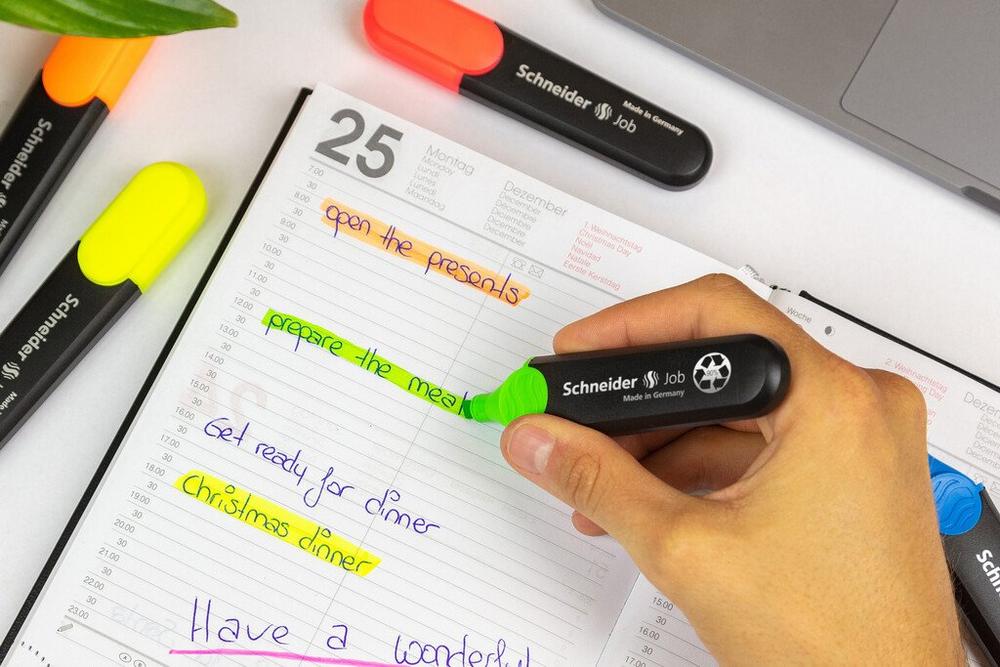 Schneider Job
Made in Germany
Schneider
Schneider
Made
25
Montag
Monday
Lundi
Lunes
Lunedi
Maandag
Dezember
December
Décembre
Diciembre
Dicembre
December
1. Weihnachtstag
Christmas Day
Noël
Navidad
Natale
Eerste Kerstdag
7.00
30
8.00
30
9.00
30
10.00
30
11.00
30
12.00
30
13.00
30
14.00
30
15.00
30
16.00
30
17.00
30
18.00
30
19.00
30
20.00
30
21.00
30
22.00
30
23.00
open the presents
prepare the meal
Get ready for dinner
Christmas dinner
Have a wonderful
Schneider Job
Made in Germany
Woche
2. Weihnachtstag
15.00
30
16.00
30
17.00
Schn